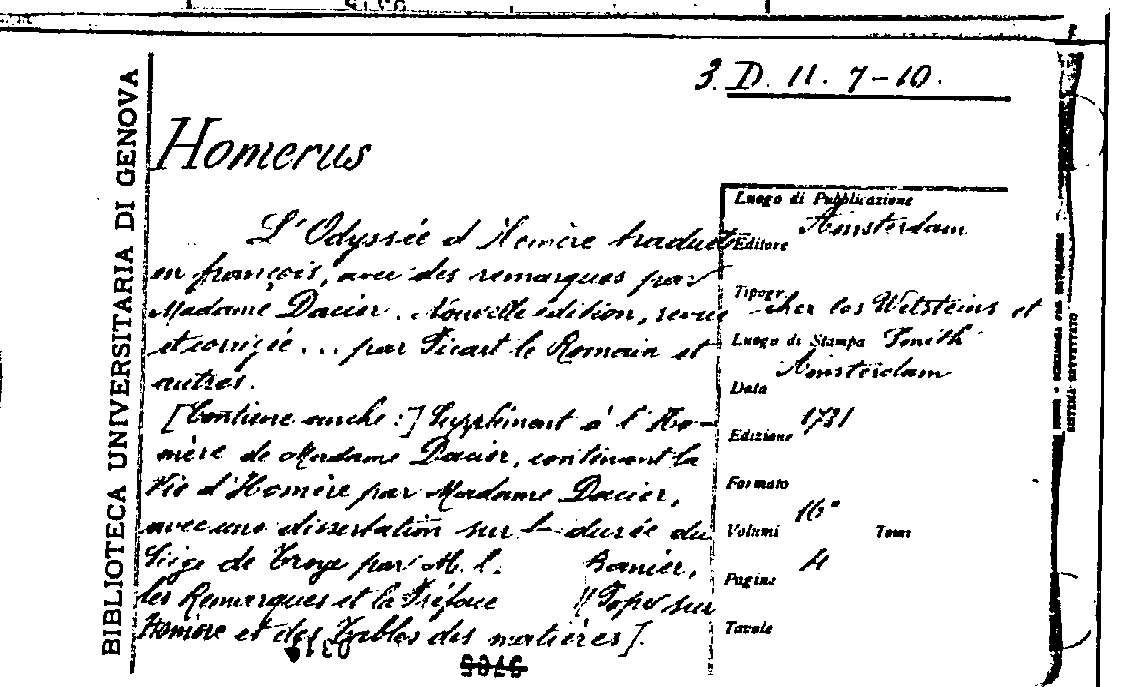 3. D. 11. 7-10.
BIBLIOTECA UNIVERSITARIA DI GENOVA
Homerus
L'Odyssée d'Homère traduct
en françois, avec des remarques par
Madame Dacier. Nouvelle édition, revue
et corrigée... par Picart le Romain et
autres.
[Contiene anche:] Supplément à l'Ho-
mère de Madame Dacier, contenant la
Vie d'Homère par Madame Dacier,
avec une dissertation sur la durée du
Siège de Troye par M. l. Banier,
les Remarques et la Préface Pope sur
Homère et des Tables des matières].
Luogo di Pubblicazione
Amsterdam
Editore
Tipogr. cher les Wetsteins et
Smith
Luogo di Stampa
Amsterdam
Data
1731
Edizione
Formato
16°
Volumi Tomi
4
Pagine
Tavole